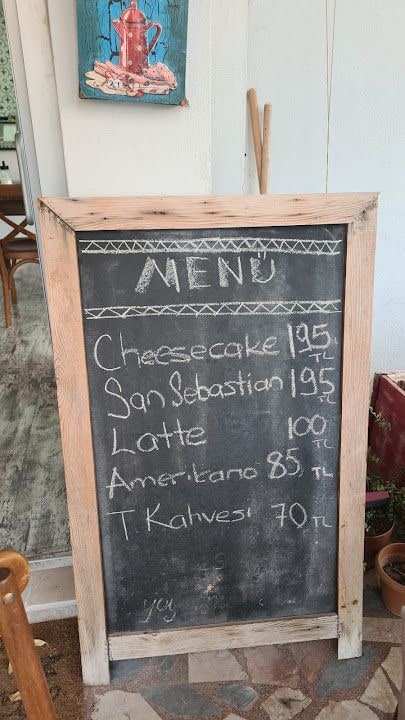 MENÜ
Cheesecake 195 TL
San Sebastian 195 TL
Latte 100 TL
Amerikano 85 TL
T Kahvesi 70 TL